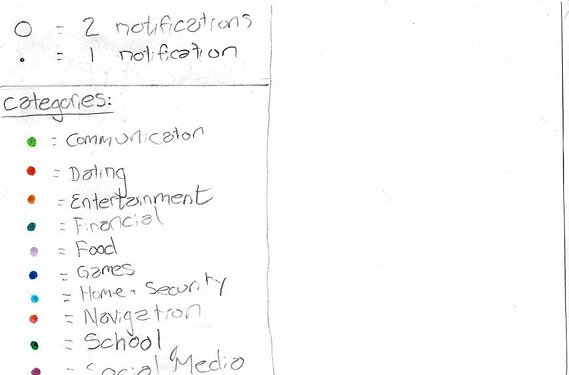 O = 2 notifications
. = 1 notification
Categories:
= Communicaton
= Dating
= Entertainment
= Financial
= Food
= Games
= Home + Security
= Navigation
= School
= Social Media